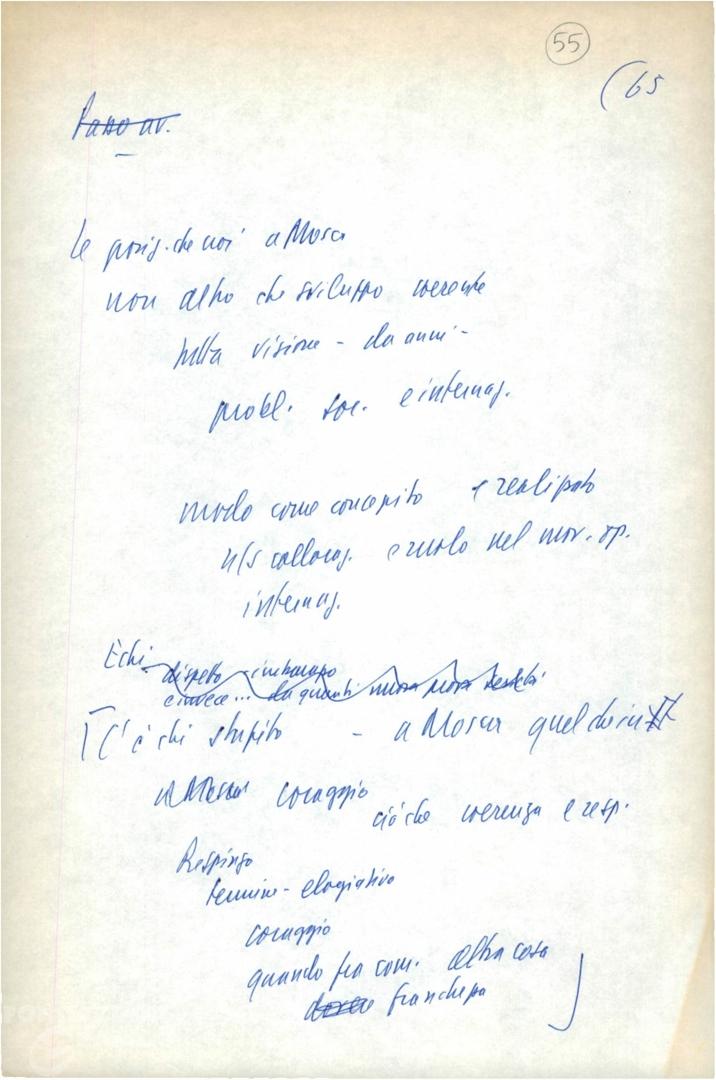 55
(65
Passo av.
le posiz. che noi a Mosca
non altro che sviluppo coerente
tutta visione - da anni -
probl. soc. e internaz.
modo come concepito e realizzato
n/s collocaz. e ruolo nel mov. op.
internaz.
È chi
dispetto - imbarazzo
e invece ... da quanti nuova prova
C'è chi stupito - a Mosca quel che in It
coraggio
ciò che coerenza e resp.
Respingo
termine - elogiativo
coraggio
quando fra com. altra cosa
franchezza